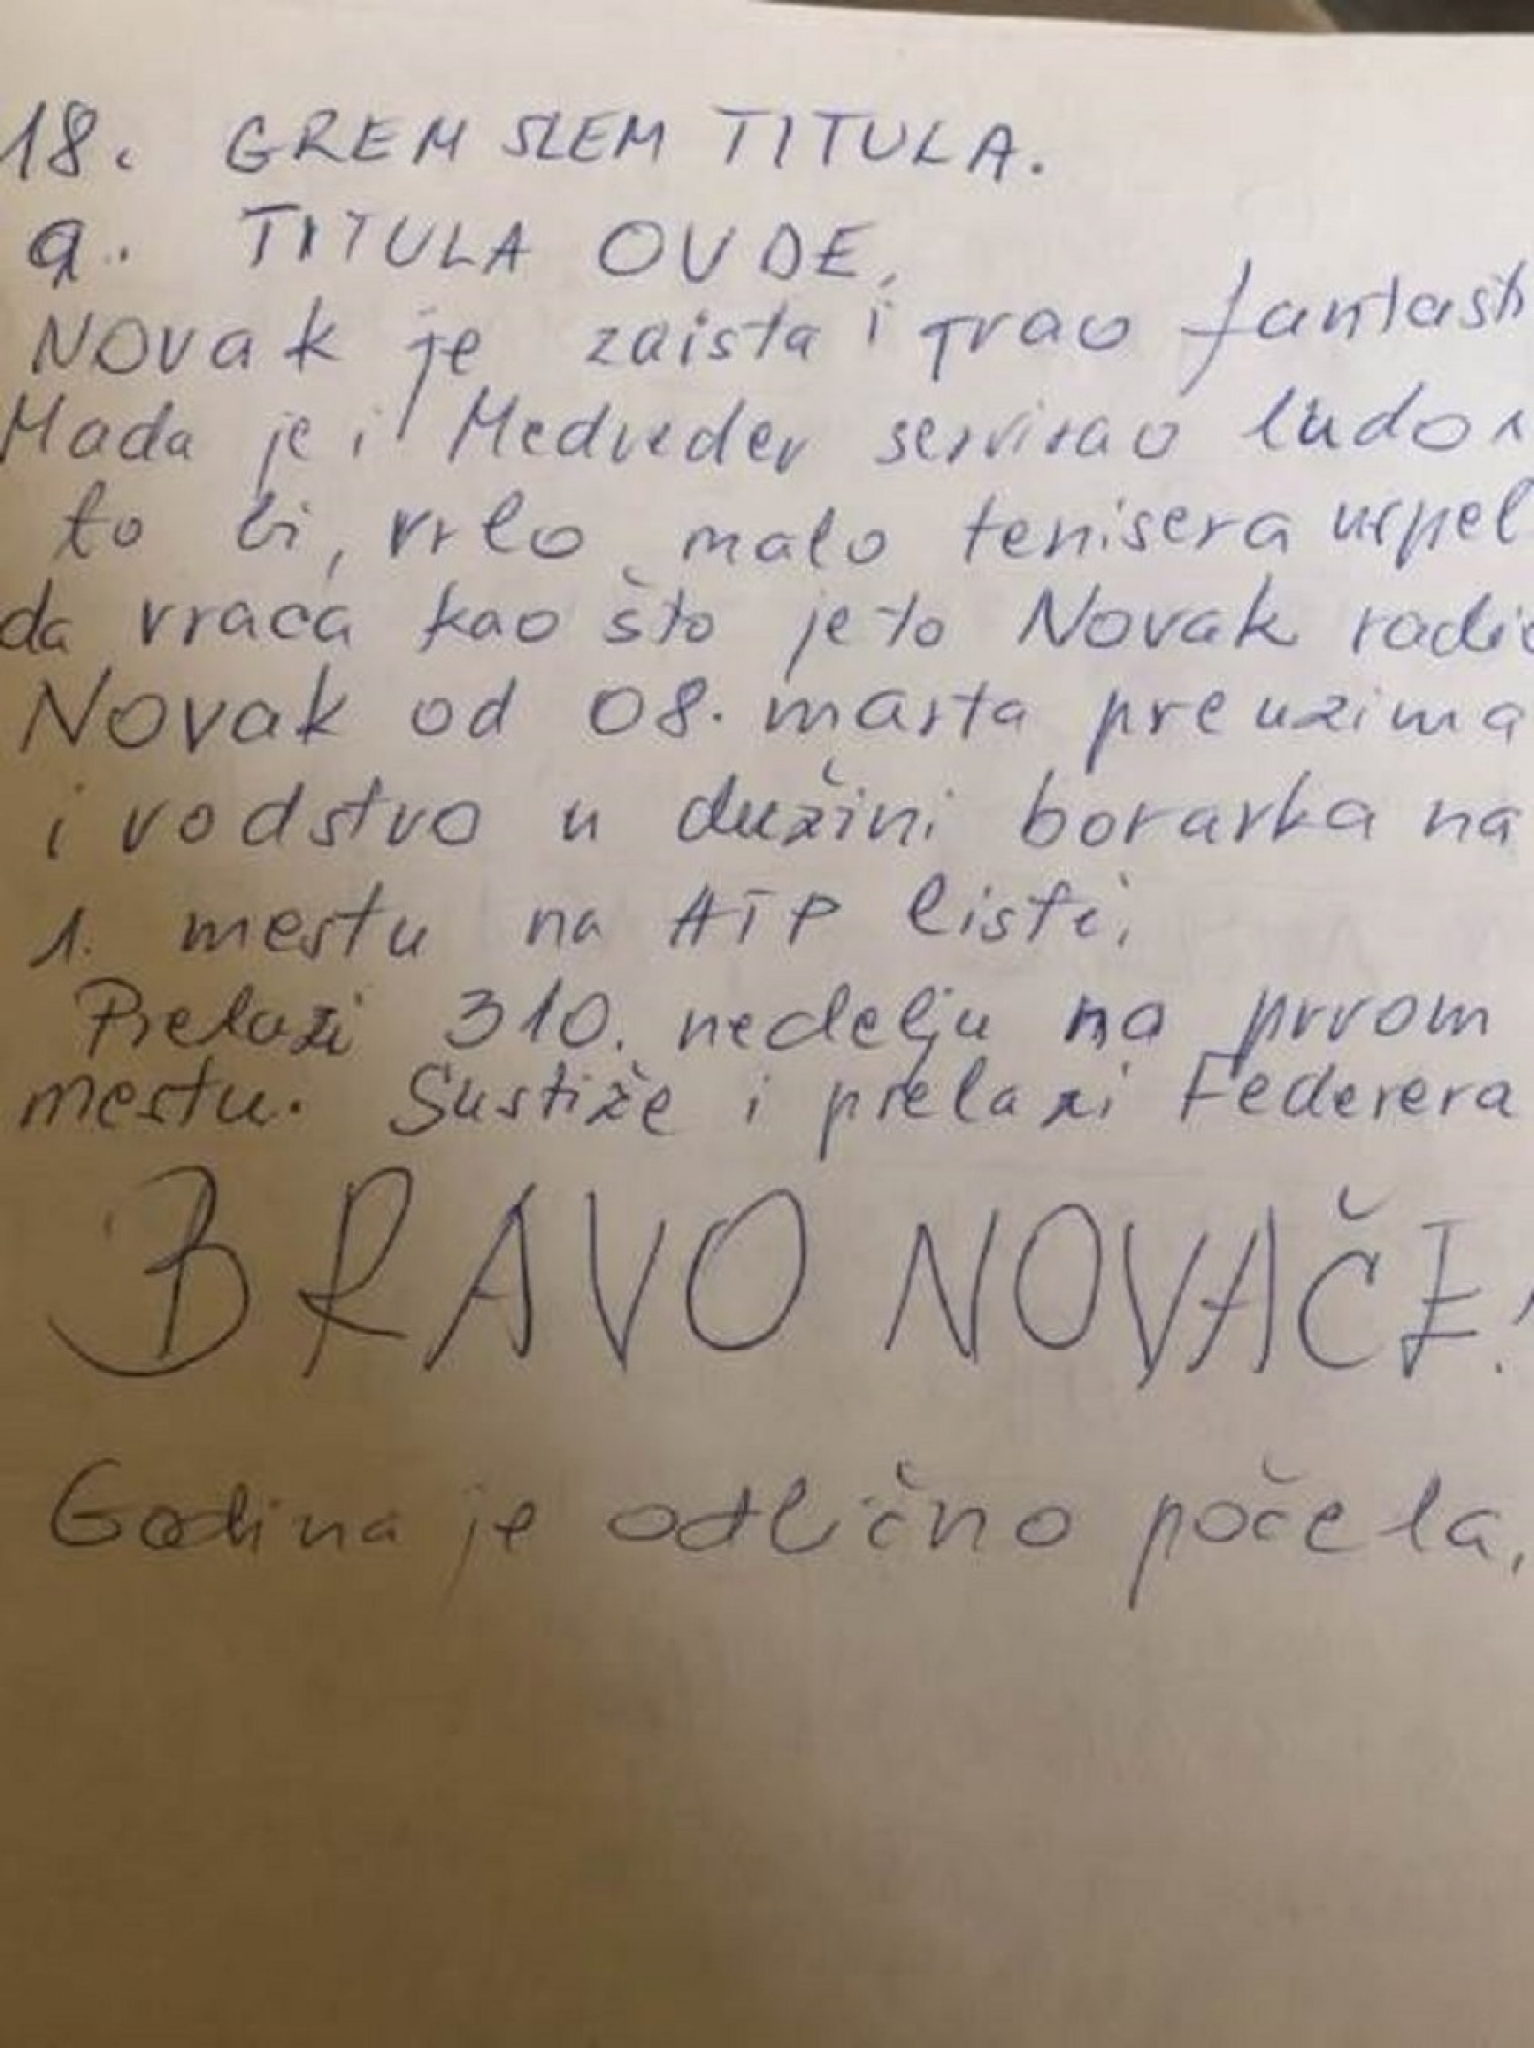 18. GREM SLEM TITULA.
9. TITULA OVDE.
Novak je zaista igrao fantasti
Mada je i Medvedev servirao ludo
to bi, vrlo malo tenisera uspel
da vraca kao što je to Novak radio
Novak od 08. marta preuzima
i vodstvo u dužini boravka na
1. mestu na ATP listi,
Prelazi 310. nedelju na prvom
mestu. Sustiže i prelazi Federera
BRAVO NOVAČE!
Godina je odlično počela,